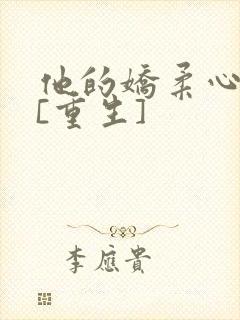 他的嬌柔心
[重生]
李應貴